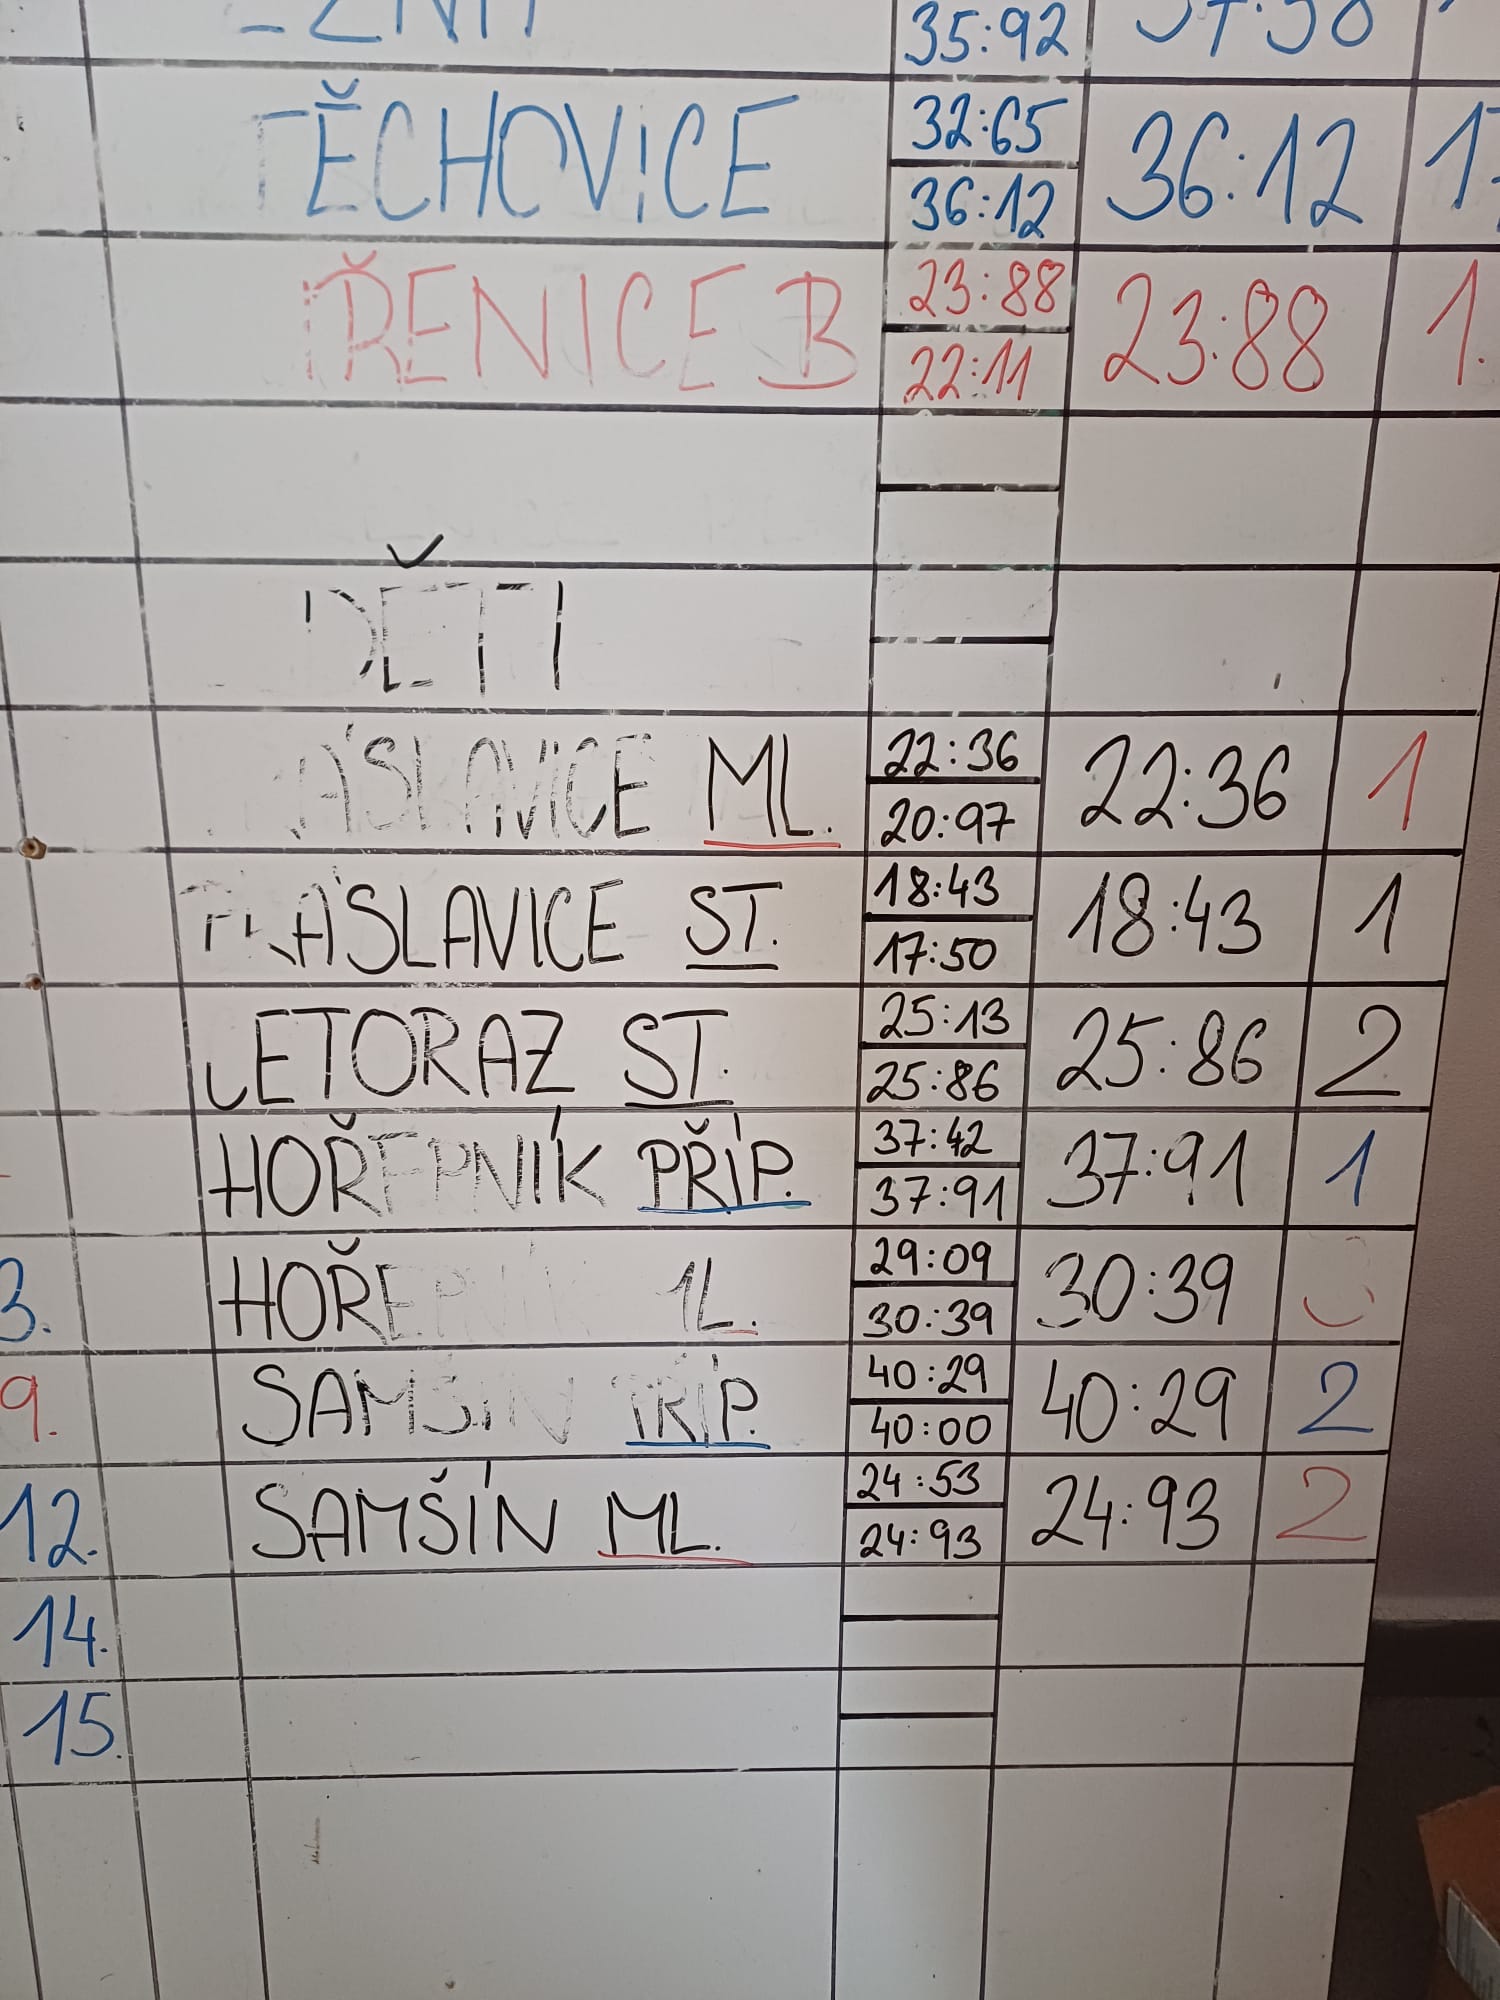 35:92
TĚCHOVICE 32:65 36:12 36:12
ŘENICE B 23:88 22:11 23:88 1.
DĚTI
ÁSLAVICE ML. 22:36 20:97 22:36 1
ÁSLAVICE ST. 18:43 17:50 18:43 1
LETORAZ ST. 25:13 25:86 25:86 2
HOŘEPNÍK PŘÍP. 37:42 37:91 37:91 1
3. HOŘEPN ML. 29:09 30:39 30:39 3
9. SAMŠÍN PŘÍP. 40:29 40:00 40:29 2
12. SAMŠÍN ML. 24:53 24:93 24:93 2
14.
15.